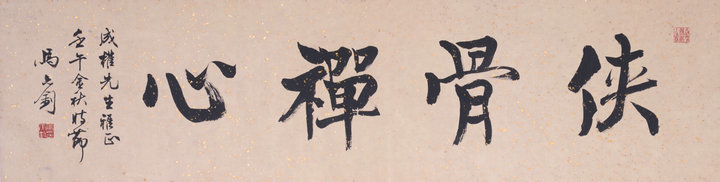 俠骨禪心
成權先生雅正
壬午金秋時節
馮立劍